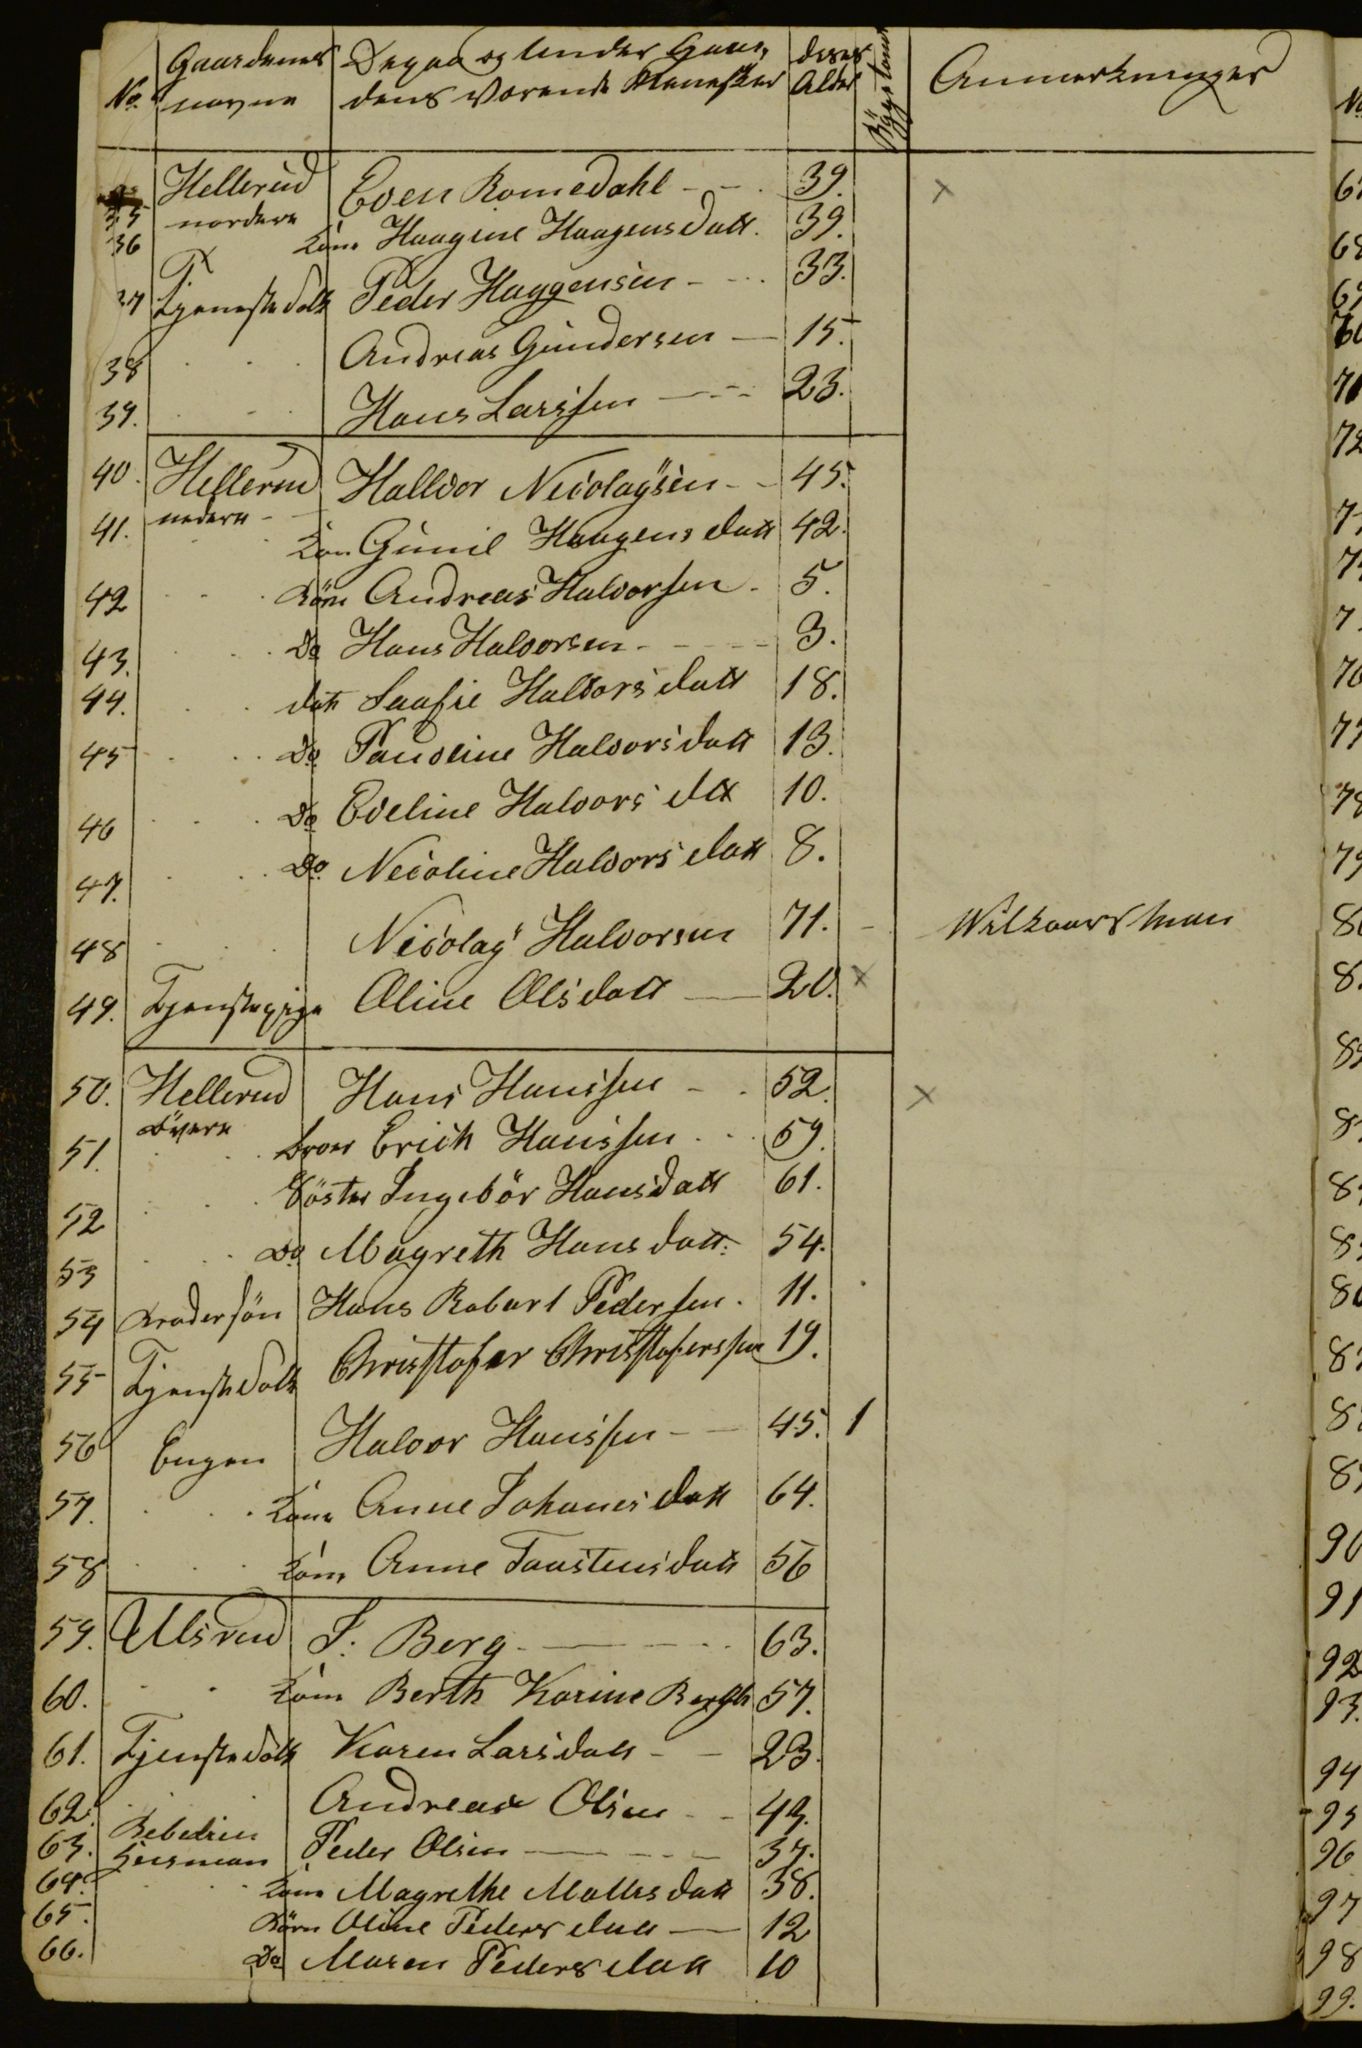 No. Gaardenes navne Depaa og under Gaar, dens Værende Menesker deres Alder Anmerkninger
35 Hellerud nordere Even Romedahl - - 39.
36 kone Haagine Haagensdatt. 39.
37 Tjenestefolk Peder Haggensen - - 33.
38 Andreas Gundersen - 15.
39. Hans Larssen - - - 23.
40. Hellerud nedere - Halvor Nicolaysen - - 45.
41. kone Gunil Haagensdatt 42.
42 Börn Andreas Halvorsen - 5.
43. Do Hans Halvorsen - - - - 3.
44. datt Saafie Halvorsdatt 18.
45 Do Pauoline Halvorsdatt 13.
46 Do Eveline Halvors dtt 10.
47. Do Nicoline Halvorsdatt 8.
48 Nicolay Halvorsen 71. - Wilkaarsman
49. Tjenstepige Oline Olsdatt - 20. x
50. Hellerud övere Hans Hanssen - - 52. x
51. broer Erich Hanssen - - 59.
52 Söster Ingebör Hansdatt 61.
53 Do Magreth Hansdatt. 54.
54 Brodersön Hans Robert Pedersen. 11.
55 Tjenstefolk Christofer Christoferssen 19.
56 Engen Halvor Hanssen - - 45. 1
57. kone Anne Johanesdatt 64.
58 kone Anne Taastensdatt 56
59. Ulsrud J. Berg - - - - 63.
60. kone Berth Karine Bergh 57.
61. Tjenstefolk Karen Larsdatt - - 23.
62. Andreas Olsen - - 43.
63. Huusman Peder Olsen - - - - 37.
64. kone Magrethe Mattisdatt 38.
65. Börn Oline Pedersdatt - 12
66. Do Maren Pedersdatt 10
67
68
69
70
71
72
90
91
92
93.
94
95
96
97
98
99.